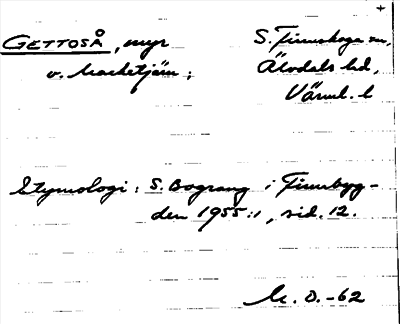 GETTOSÅ, myr
v. Macketjärn;
S. Finnskoga sn,
Älvdals hd,
Värml. l
Etymologi: S. Bograng i Finnbyg-
den 1955:1, sid. 12.
M. O. -62